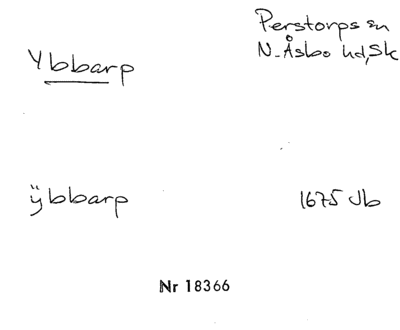 Ybbarp
Perstorps sn
N. Åsbo hd, Sk
ÿbbarp
1675 Jb
Nr 18366